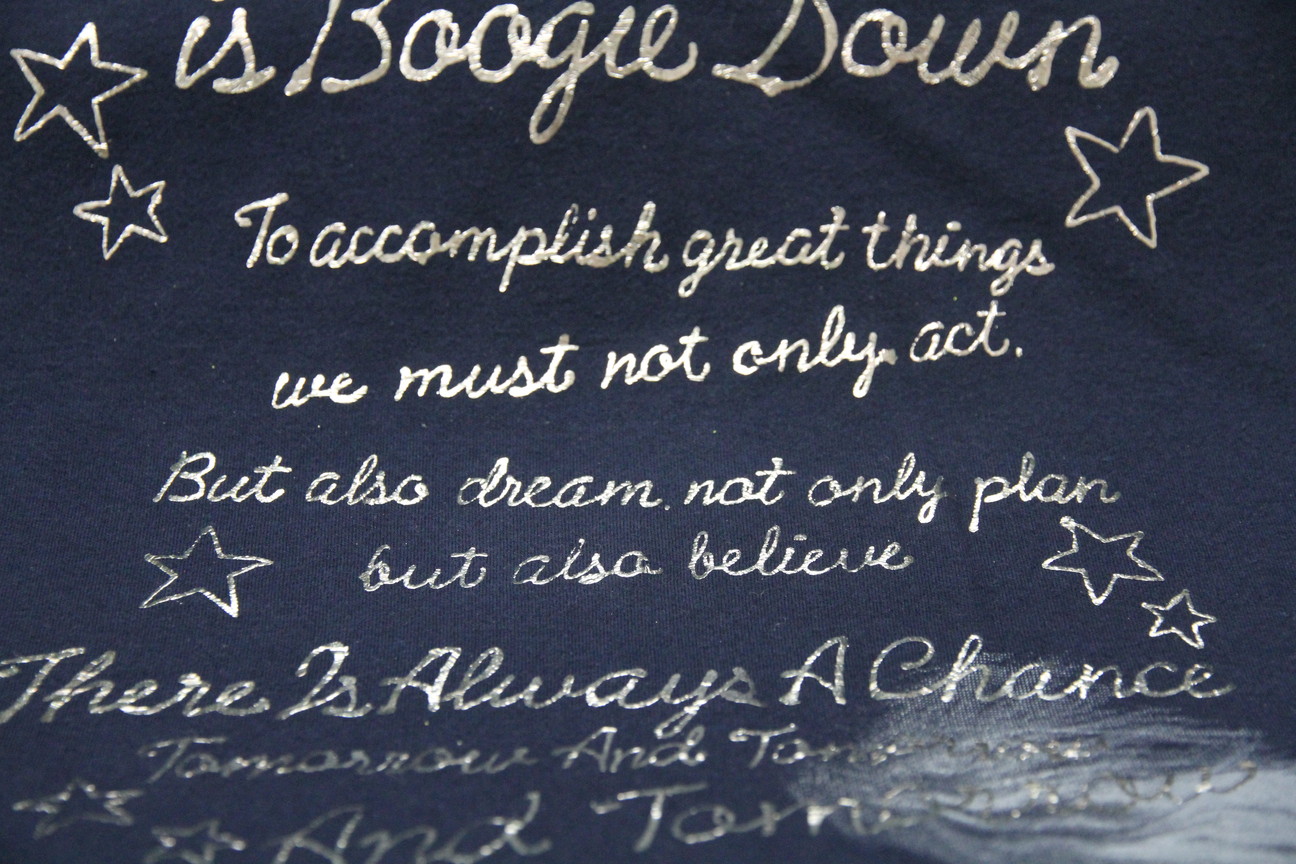 is Boogie Down
To accomplish great things
we must not only act.
But also dream, not only plan
but also believe
There Is Always A Chance
Tomorrow And Tomorrow
And Tomorrow